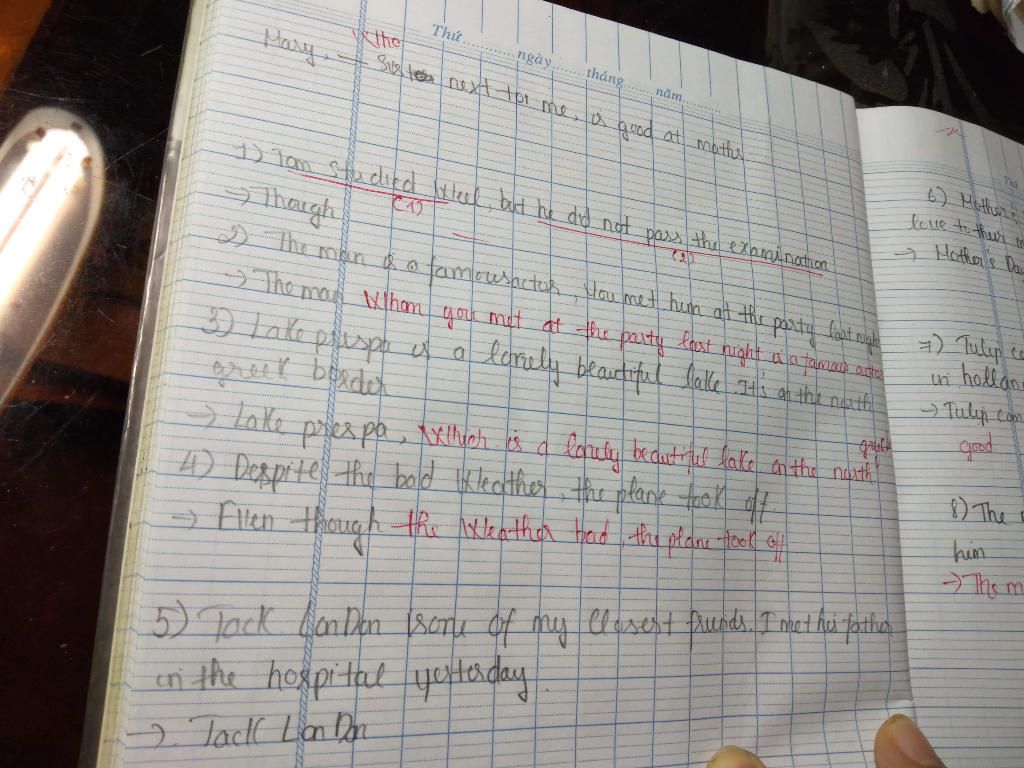 Thứ.......... ngày....... tháng....... năm..........
Who
Mary, — next to me, is good at maths
1) Tom Studied Well, but he did not pass the examination
(1) (2)
→ Though
2) The man is a famous actor, you met him at the party last night
→ The man Whom you met at the party last night is a famous actor
3) Lake prespa is a lonely beautiful lake. It's on the north
greek border
→ Lake prespa, Which is a lonely beautiful lake on the north
4) Despite the bad Weather, the plane took off
→ Even though the Weather bad, the plane took off
5) Jack LonDon is one of my Closest friends. I met his father
in the hospital yesterday.
→. Jack LonDon
Thứ
6) Mother's
love to their
→ Mother's Day
7) Tulip
in hollan
→ Tulip
good
8) The
him
→ The m